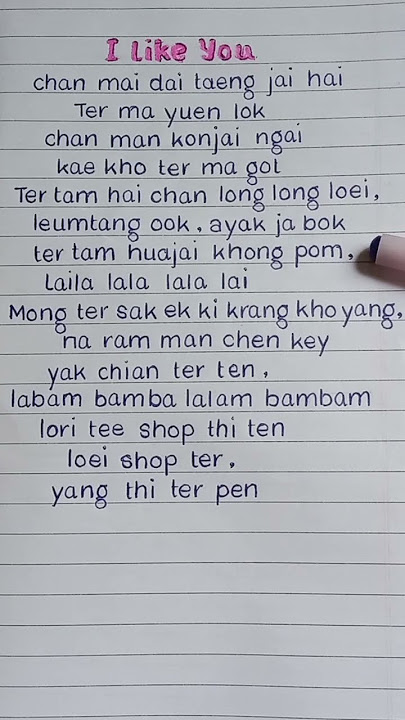 I Like You
chan mai dai taeng jai hai
Ter ma yuen lok
chan man konjai ngai
kae kho ter ma got
Ter tam hai chan long long loei,
leumtang ook, ayak ja bok
ter tam huajai khong pom,
Laila lala lala lai
Mong ter sak ek ki krang kho yang,
na ram man chen key
yak chian ter ten,
labam bamba lalam bambam
lori tee shop thi ten
loei shop ter,
yang thi ter pen